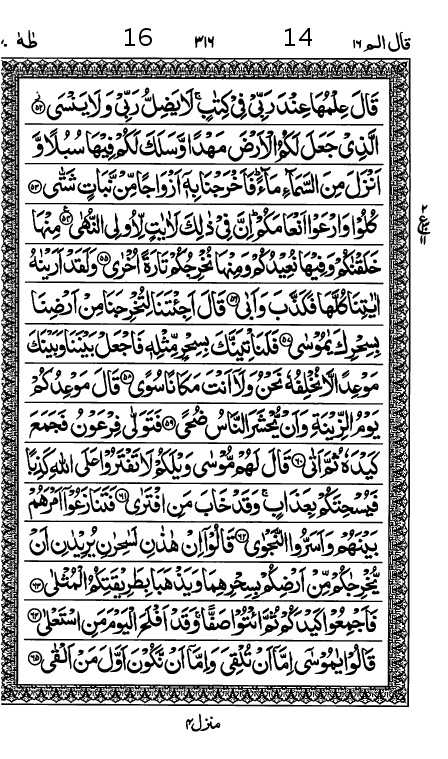 طٰهٰ ٢٠ 16 ٣١٦ 14 قال الم ١٦
قَالَ عِلْمُهَا عِنْدَ رَبِّیْ فِیْ كِتٰبٍ ۚ لَا یَضِلُّ رَبِّیْ وَ لَا یَنْسَى ﴿۵۲﴾
الَّذِیْ جَعَلَ لَكُمُ الْاَرْضَ مَهْدًا وَّ سَلَكَ لَكُمْ فِیْهَا سُبُلًا وَّ
اَنْزَلَ مِنَ السَّمَآءِ مَآءً ؕ فَاَخْرَجْنَا بِهٖۤ اَزْوَاجًا مِّنْ نَّبَاتٍ شَتّٰى ﴿۵۳﴾
كُلُوْا وَ ارْعَوْا اَنْعَامَكُمْ ؕ اِنَّ فِیْ ذٰلِكَ لَاٰیٰتٍ لِّاُولِی النُّهٰى ﴿۵۴﴾ مِنْهَا
خَلَقْنٰكُمْ وَ فِیْهَا نُعِیْدُكُمْ وَ مِنْهَا نُخْرِجُكُمْ تَارَةً اُخْرٰى ﴿۵۵﴾ وَ لَقَدْ اَرَیْنٰهُ
اٰیٰتِنَا كُلَّهَا فَكَذَّبَ وَ اَبٰى ﴿۵۶﴾ قَالَ اَجِئْتَنَا لِتُخْرِجَنَا مِنْ اَرْضِنَا
بِسِحْرِكَ یٰمُوْسٰى ﴿۵۷﴾ فَلَنَاْتِیَنَّكَ بِسِحْرٍ مِّثْلِهٖ فَاجْعَلْ بَیْنَنَا وَ بَیْنَكَ
مَوْعِدًا لَّا نُخْلِفُهٗ نَحْنُ وَ لَاۤ اَنْتَ مَكَانًا سُوًى ﴿۵۸﴾ قَالَ مَوْعِدُكُمْ
یَوْمُ الزِّیْنَةِ وَ اَنْ یُّحْشَرَ النَّاسُ ضُحًى ﴿۵۹﴾ فَتَوَلّٰى فِرْعَوْنُ فَجَمَعَ
كَیْدَهٗ ثُمَّ اَتٰى ﴿۶۰﴾ قَالَ لَهُمْ مُّوْسٰى وَیْلَكُمْ لَا تَفْتَرُوْا عَلَى اللّٰهِ كَذِبًا
فَیُسْحِتَكُمْ بِعَذَابٍ ۚ وَ قَدْ خَابَ مَنِ افْتَرٰى ﴿۶۱﴾ فَتَنَازَعُوْۤا اَمْرَهُمْ
بَیْنَهُمْ وَ اَسَرُّوا النَّجْوٰى ﴿۶۲﴾ قَالُوْۤا اِنْ هٰذٰىنِ لَسٰحِرٰنِ یُرِیْدٰنِ اَنْ
یُّخْرِجٰكُمْ مِّنْ اَرْضِكُمْ بِسِحْرِهِمَا وَ یَذْهَبَا بِطَرِیْقَتِكُمُ الْمُثْلٰى ﴿۶۳﴾
فَاَجْمِعُوْا كَیْدَكُمْ ثُمَّ ائْتُوْا صَفًّا ۚ وَ قَدْ اَفْلَحَ الْیَوْمَ مَنِ اسْتَعْلٰى ﴿۶۴﴾
قَالُوْا یٰمُوْسٰۤى اِمَّاۤ اَنْ تُلْقِیَ وَ اِمَّاۤ اَنْ نَّكُوْنَ اَوَّلَ مَنْ اَلْقٰى ﴿۶۵﴾
٢
ع
١١
منزل ۴